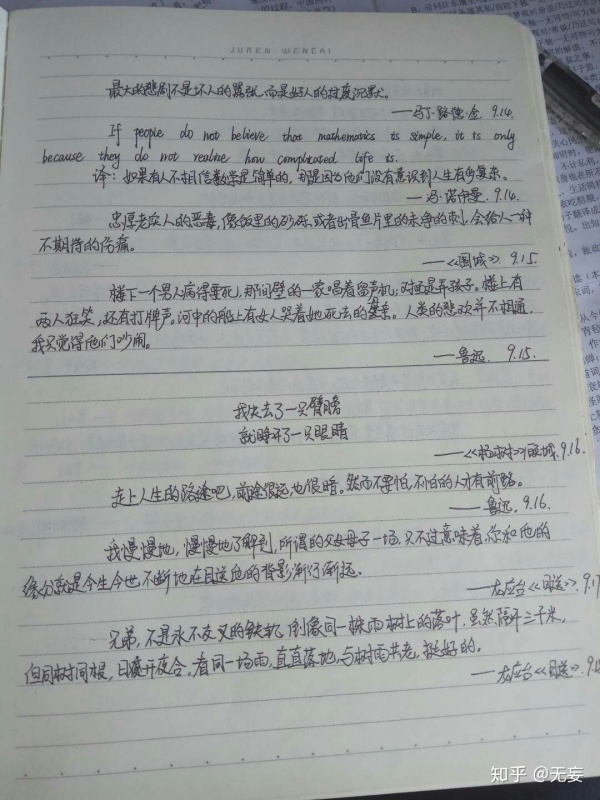 JUREN WENCAI
最大的悲剧不是坏人的嚣张,而是好人的过度沉默。
——马丁·路德·金 9.14.
If people do not believe that mathematics is simple, it is only
because they do not realize how complicated life is.
译:如果有人不相信数学是简单的,那是因为他们没有意识到人生有多复杂。
——冯·诺伊曼. 9.14.
忠厚老实人的恶毒,像饭里的砂砾,或者出骨鱼片里的未净的刺,会给人一种
不期待的伤痛。
——《围城》. 9.15.
楼下一个男人病得要死,那间壁的一家唱着留声机;对面是弄孩子。楼上有
两人狂笑,还有打牌声。河中的船上有女人哭着她死去的母亲。人类的悲欢并不相通,
我只觉得他们吵闹。
——鲁迅. 9.15.
我失去了一只臂膀
就睁开了一只眼睛
——《杨树》顾城.9.16.
走上人生的路途吧,前途很远,也很暗。然而不要怕,不怕的人才有前路。
——鲁迅. 9.16.
我慢慢地,慢慢地了解到,所谓的父女母子一场,只不过意味着,你和他的
缘分就是今生今世,不断地在目送他的背影渐行渐远.
——龙应台《目送》.9.17
兄弟,不是永不交叉的铁轨,倒像同一株雨树上的落叶.虽然隔开三千米,
但同树同根,日开夜合。看同一场雨,直直落地,与树雨共老,挺好的。
——龙应台《目送》. 9.18
知乎 @无妄